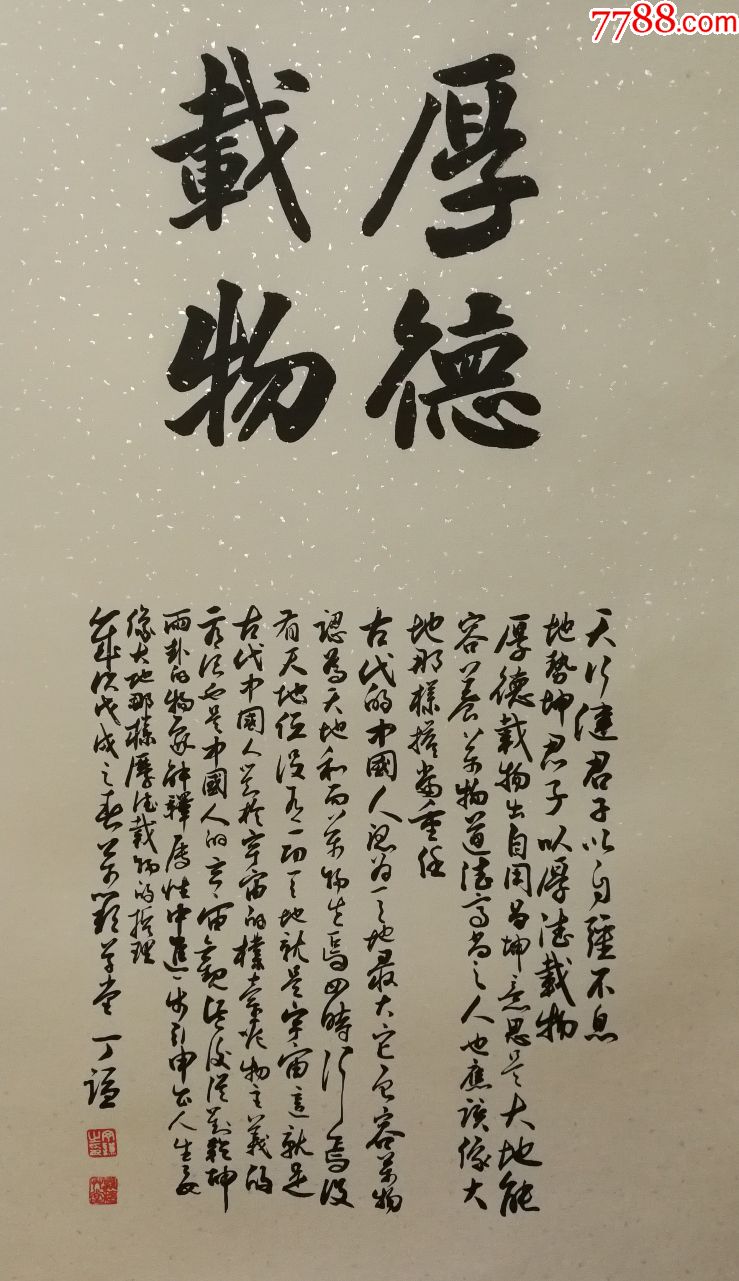 7788.com
厚德
載物
天行健君子以自強不息
地勢坤君子以厚德載物
厚德載物出自周易坤意思是大地能
容養萬物道德高尚之人也應該像大
地那樣擔當重任
古代的中國人認為天地最大它包容萬物
認為天地和而萬物生焉四時行焉沒
有天地便沒有一切天地就是宇宙這就是
古代中國人對於宇宙的樸素唯物主義的
看法也是中國人的宇宙觀然後從對乾坤
兩卦的物象解釋屬性中進一步引申出人生要
像大地那樣厚德載物的哲理
歲次戊戌之春 草堂 丁謙